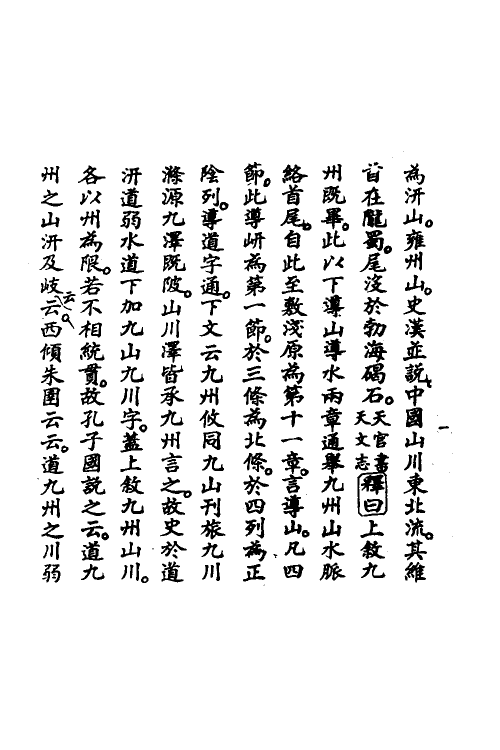 為汧山。雍州山。史漢並説。中國山川東北流。其維
首在隴蜀。尾沒於勃海碣石。天官書天文志釋曰上敘九
州既畢。此以下導山導水兩章通舉九州山水脈
絡首尾。自此至敷淺原為第十一章。言導山。凡四
節。此導岍為第一節。於三條為北條。於四列為正
陰列。導道字通。下文云九州攸同九山刊旅九川
滌源九澤既陂。山川澤皆承九州言之。故史於道
汧道弱水道下加九山九川字。蓋上敘九州山川。
各以州為限。若不相統貫。故孔子國説之云。道九
州之山汧及岐云云。西傾朱圉云云。道九州之川弱